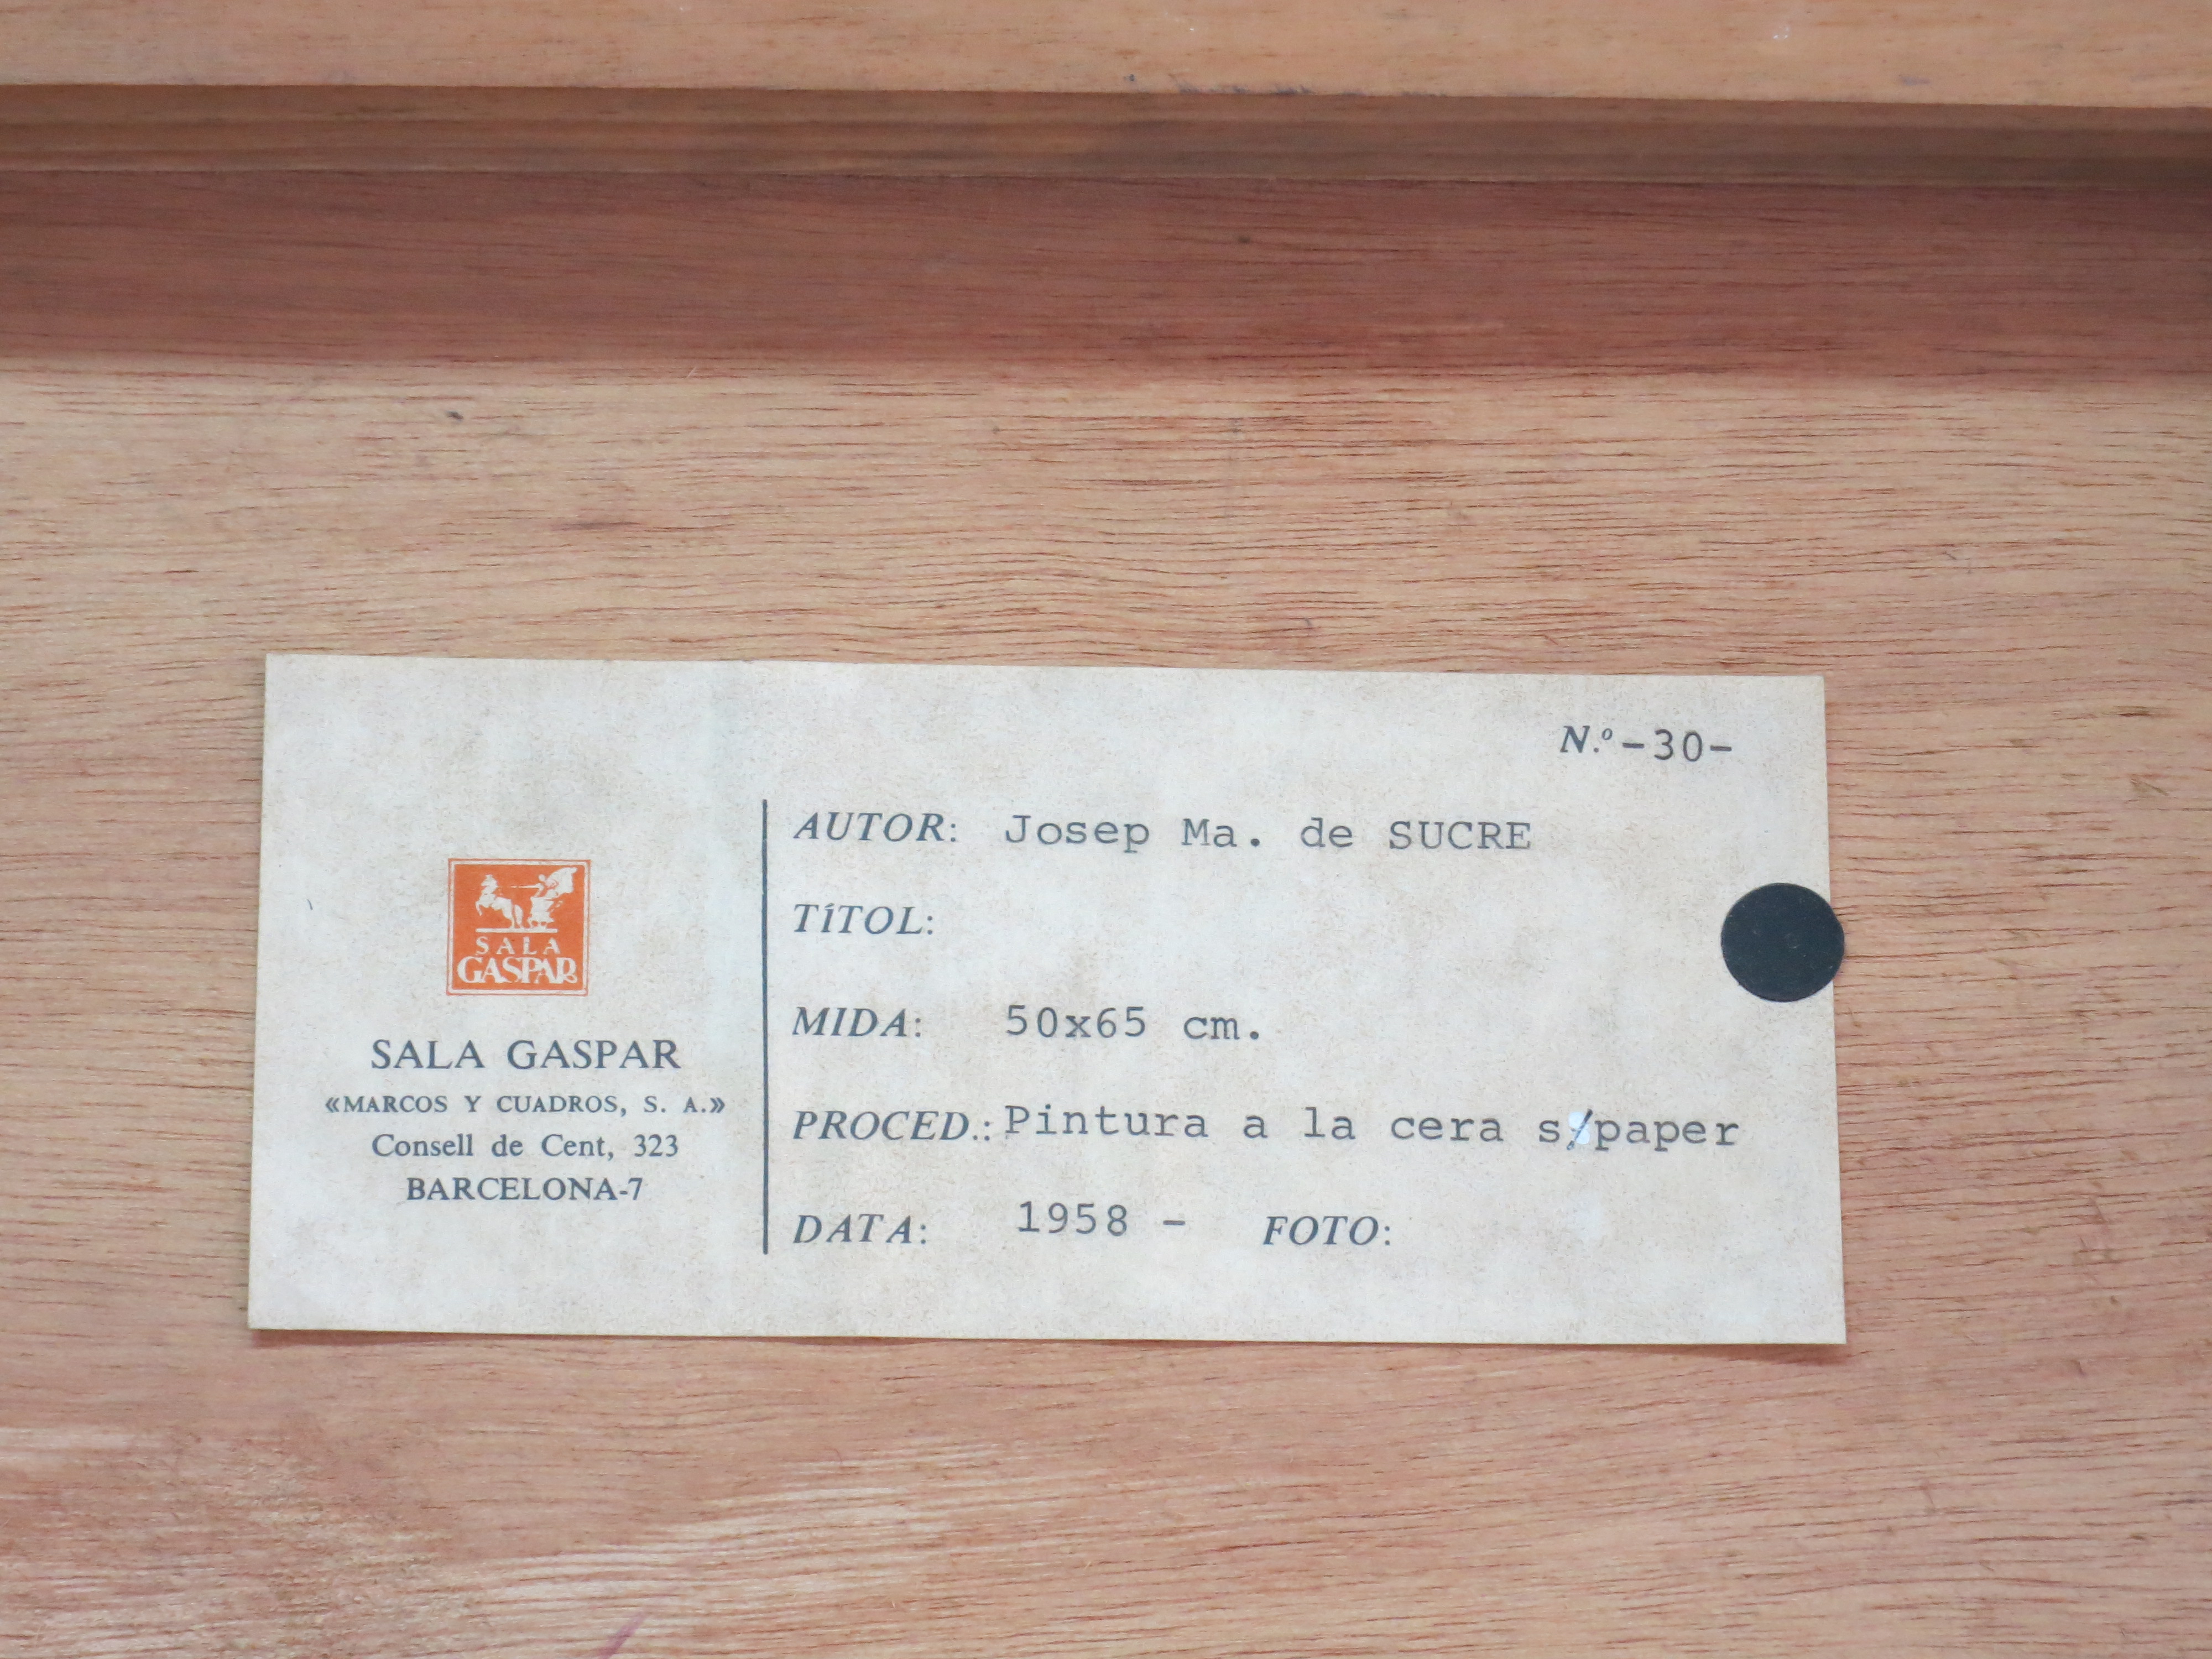 SALA
GASPAR
SALA GASPAR
«MARCOS Y CUADROS, S. A.»
Consell de Cent, 323
BARCELONA-7
N.º -30-
AUTOR: Josep Ma. de SUCRE
TíTOL:
MIDA: 50x65 cm.
PROCED.: Pintura a la cera s/paper
DATA: 1958 - FOTO: